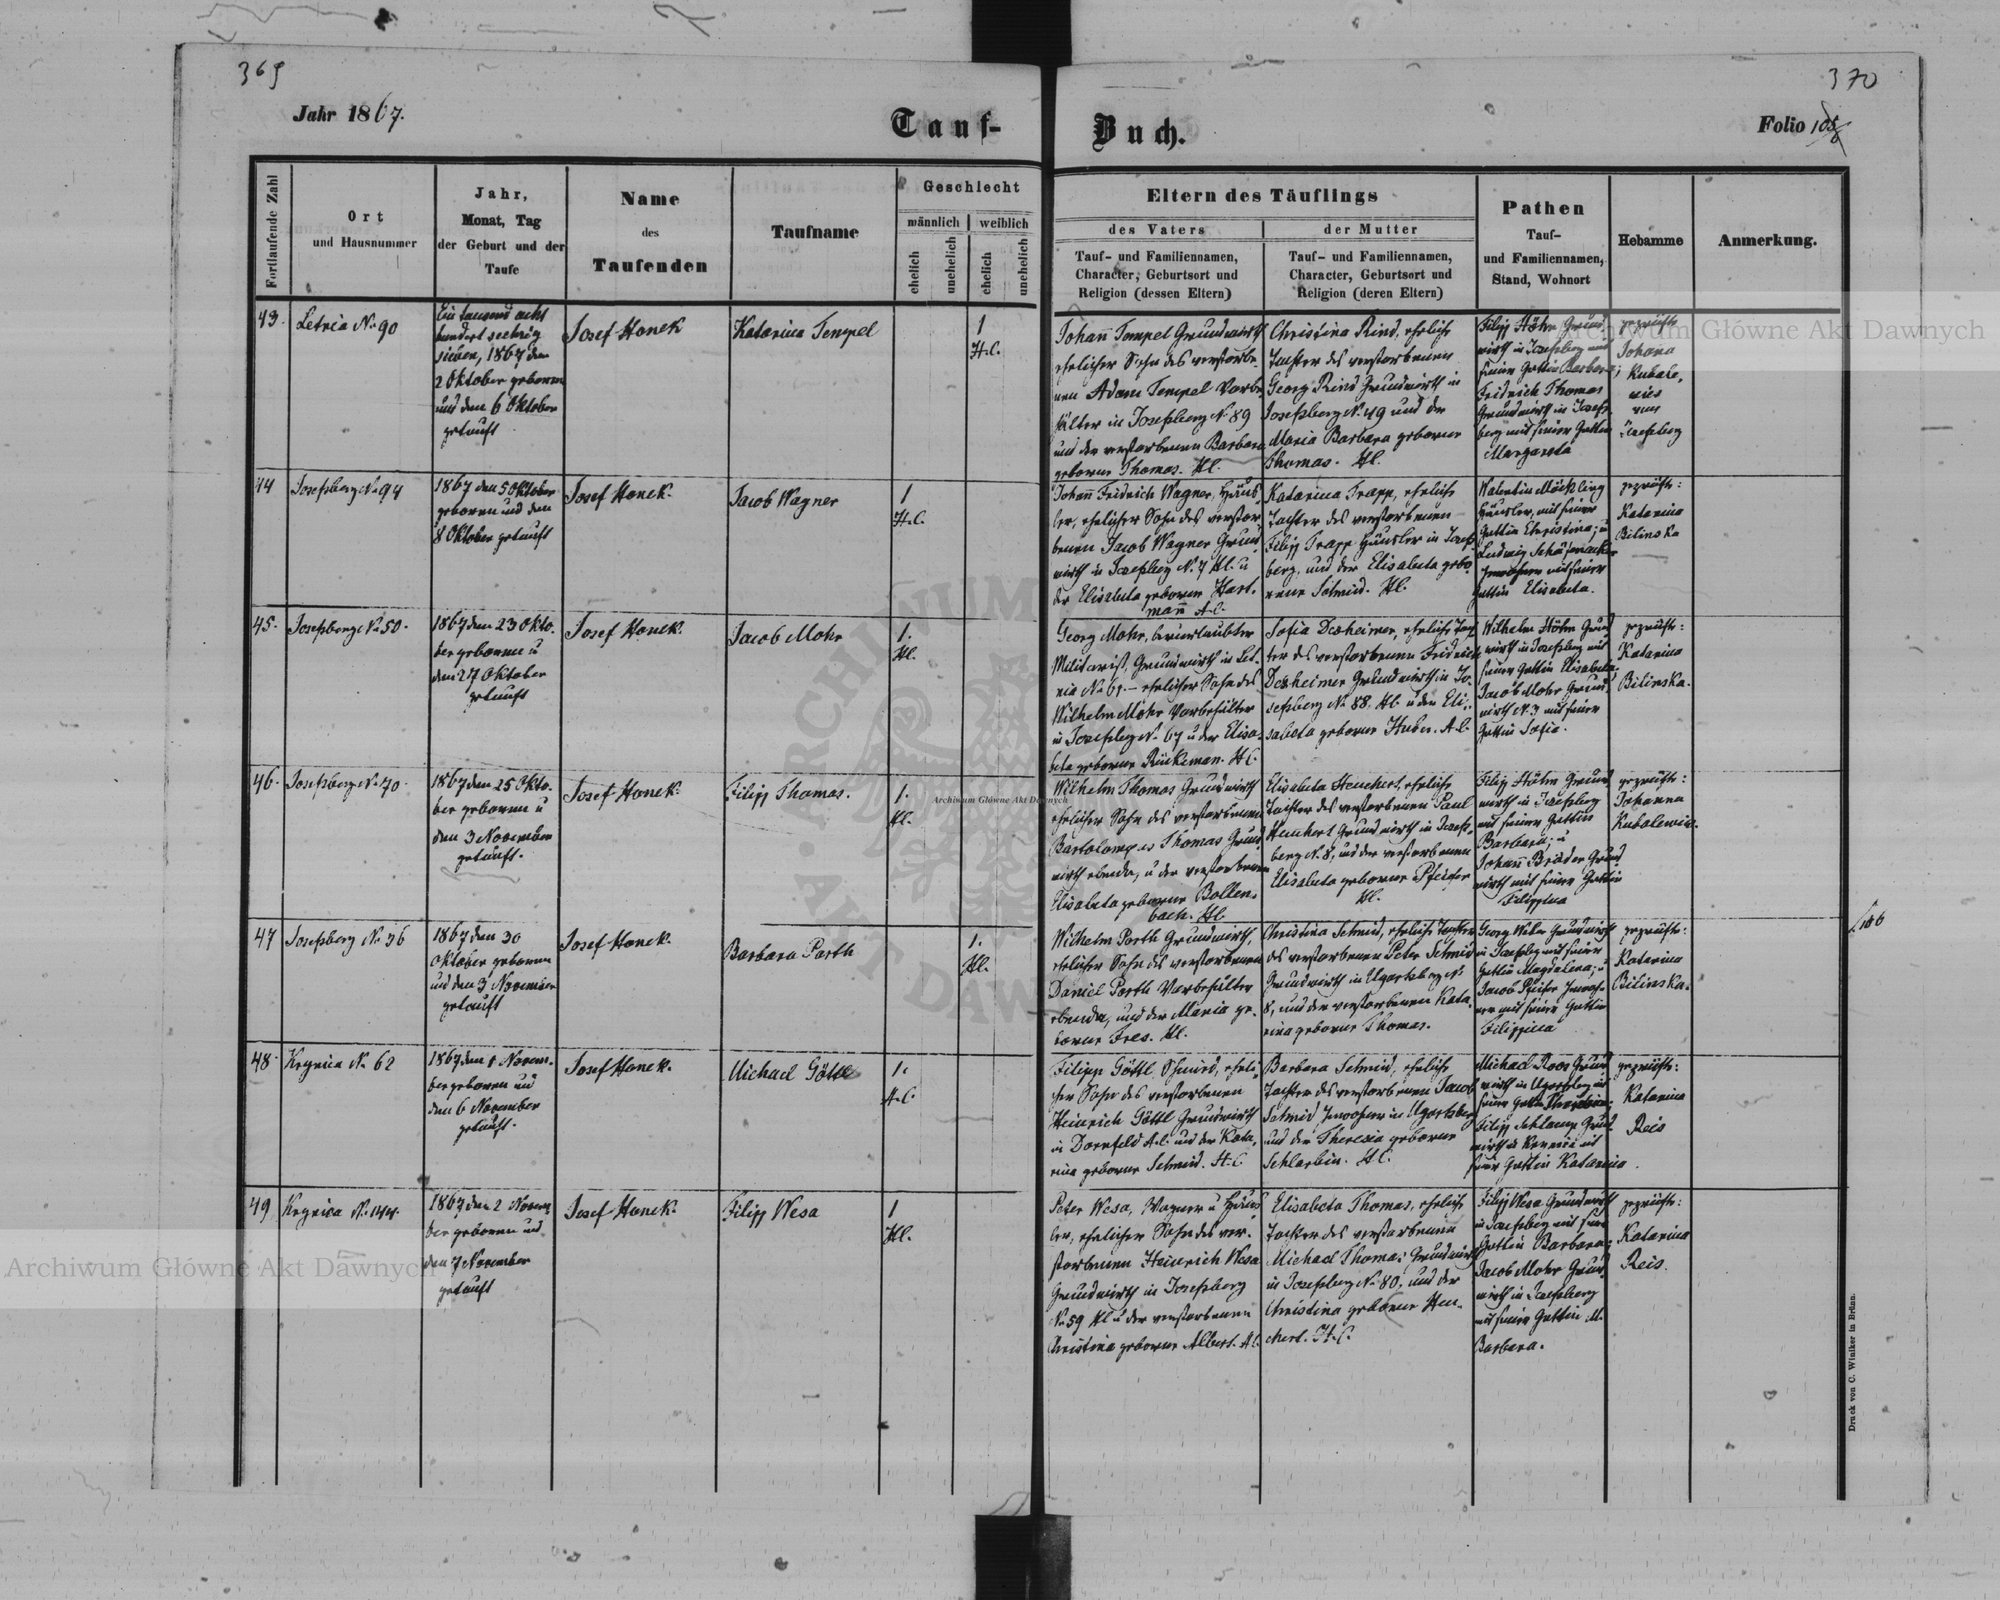 369
370
Jahr 1867.
Tauf-
Buch.
Folio 105
Fortlaufende Zahl
Ort
und Hausnummer
Jahr,
Monat, Tag
der Geburt und der
Taufe
Name
des
Taufenden
Taufname
Geschlecht
männlich
weiblich
ehelich
unehelich
ehelich
unehelich
Eltern des Täuflings
des Vaters
der Mutter
Tauf- und Familiennamen,
Character, Geburtsort und
Religion (dessen Eltern)
Tauf- und Familiennamen,
Character, Geburtsort und
Religion (deren Eltern)
Pathen
Tauf-
und Familiennamen,
Stand, Wohnort
Hebamme
Anmerkung.
43.
Letnia No 90
Ein tausend acht
hundert sechzig
sieben, 1867 den
2 Oktober geboren
und den 6 Oktober
getauft
Josef Honek
Katarina Tempel
1
H.C.
Johañ Tempel Grundwirth
ehelicher Sohn des verstorbe-
nen Adam Tempel Vorbe-
hälter in Josefsberg No 89
und der verstorbenen Barbara
geborne Thomas. H.C.
Christina Rind, eheliche
Tochter des verstorbenen
Georg Rind Grundwirth in
Josefsberg No 49 und der
Maria Barbara geborne
Thomas. H.C.
Filipp Höhn, Grund-
wirth in Josefsberg und
seiner Gattin Barbara;
Fridrich Thomas
Grundwirth in Josefs-
berg mit seiner Gattin
Margareta
geprüfte
Johana
Kubale,
wics
von
Josefsberg
44
Josefsberg No 94
1867 den 5 Oktober
geboren und den
8 Oktober getauft
Josef Honek.
Jacob Wagner
1
H.C.
Johañ Fridrich Wagner, Häus-
ler, ehelicher Sohn des verstor-
benen Jacob Wagner Grund-
wirth in Josefsberg No 7 H.C. u
der Elisabeta geborne Hart-
mañ A.C.
Katarina Trapp, eheliche
Tochter des verstorbenen
Filipp Trapp Häusler in Josefs-
berg, und der Elisabeta gebo-
rene Schmid. H.C.
Walentin Möckling
Häusler, mit seiner
Gattin Christina; u
Ludwig Schäfnacker
Inwohner mit seiner
Gattin Elisabeta.
geprüfte:
Katarina
Bilinska
45.
Josefsberg No 50.
1867 den 23 Okto-
ber geboren u
den 27 Oktober
getauft
Josef Honek.
Jacob Mohr
1.
H.C.
Georg Mohr, beurlaubter
Militarist, Grundwirth in Let-
nia No 61 – ehelicher Sohn des
Wilhelm Mohr Vorbehälter
in Josefsberg No 67 u der Elisa-
beta geborne Rückeman. H.C.
Sofia Desheimer, eheliche Toch-
ter des verstorbenen Fridrich
Desheimer Grundwirth in Jo-
sefsberg No 88. H.C. u der Eli-
sabeta geborne Huber. A.C.
Wilhelm Höhn Grund-
wirth in Josefsberg mit
seiner Gattin Elisabeta
Jacob Mohr Grund-
wirth No 3 mit seiner
Gattin Sofie.
geprüfte:
Katarina
Bilinska.
46.
Josefsberg No 70.
1867 den 25 Okto-
ber geboren u
den 3 November
getauft.
Josef Honek.
Filipp Thomas.
1.
H.C.
Wilhelm Thomas Grundwirth
ehelicher Sohn des verstorbenen
Bartolomeus Thomas Grund-
wirth ebenda, u der verstorbenen
Elisabeta geborne Bollen-
bach. H.C.
Elisabeta Heuchert, eheliche
Tochter des verstorbenen Paul
Heuchert Grundwirth in Josefs-
berg No 8, und der verstorbenen
Elisabeta geborne Pfeifer
H.C.
Filipp Höhn Grund-
wirth in Josefsberg
mit seiner Gattin
Barbara; u
Johañ Bräder Grund-
wirth mit seiner Gattin
Filippina
geprüfte:
Johanna
Kubalewicz.
47
Josefsberg No 36
1867 den 30
Oktober geboren
und den 3 November
getauft
Josef Honek.
Barbara Porth
1.
H.C.
Wilhelm Porth Grundwirth,
ehelicher Sohn des verstorbenen
Daniel Porth Vorbehälter
ebenda, und der Maria ge-
borne Fres. H.C.
Christina Schmid, eheliche Tochter
des verstorbenen Peter Schmid
Grundwirth in Ugartsberg No
8, und der verstorbenen Kata-
rina geborne Thomas.
Georg Wiler Grundwirth
in Josefsberg mit seiner
Gattin Magdalena; u
Jacob Pfeifer Inwoh-
ner mit seiner Gattin
Filippina
geprüfte:
Katarina
Bilinska.
106
48
Krynica No 62
1867 den 1 Novem-
ber geboren und
den 6 November
getauft.
Josef Honek.
Michael Göttel
1.
H.C.
Filipp Göttl, Schmied, eheli-
cher Sohn des verstorbenen
Heinrich Göttl Grundwirth
in Dornfeld A.C. und der Kata-
rina geborne Schmid. H.C.
Barbara Schmid, eheliche
Tochter des verstorbenen Jacob
Schmid Inwohner in Ugartsberg
und der Theresia geborne
Schlarbin. H.C.
Michael Roos Grund-
wirth in Ugartsberg mit
seiner Gattin
Filipp Schlamp Grund-
wirth in Krynica mit
seiner Gattin Katarina.
geprüfte:
Katarina
Reis
49
Krynica No 144.
1867 den 2 Novem-
ber geboren und
den 7 November
getauft
Josef Honek.
Filipp Wesa
1
H.C.
Peter Wesa, Wagner u Häus-
ler, ehelicher Sohn des ver-
storbenen Heinrich Wesa
Grundwirth in Josefsberg
No 59 H.C. u der verstorbenen
Christina geborne Albert. H.C.
Elisabeta Thomas, eheliche
Tochter des verstorbenen
Michael Thomas Grundwirth
in Josefsberg No 80, und der
Christina geborne Heu-
chert. H.C.
Filipp Wesa Grundwirth
in Josefsberg mit seiner
Gattin Barbara;
Jacob Mohr Grund-
wirth in Josefsberg
mit seiner Gattin M.
Barbara.
geprüfte:
Katarina
Reis.
Druck von C. Winiker in Brünn.
Archiwum Główne Akt Dawnych
Archiwum Główne Akt Dawnych
Archiwum Główne Akt Dawnych